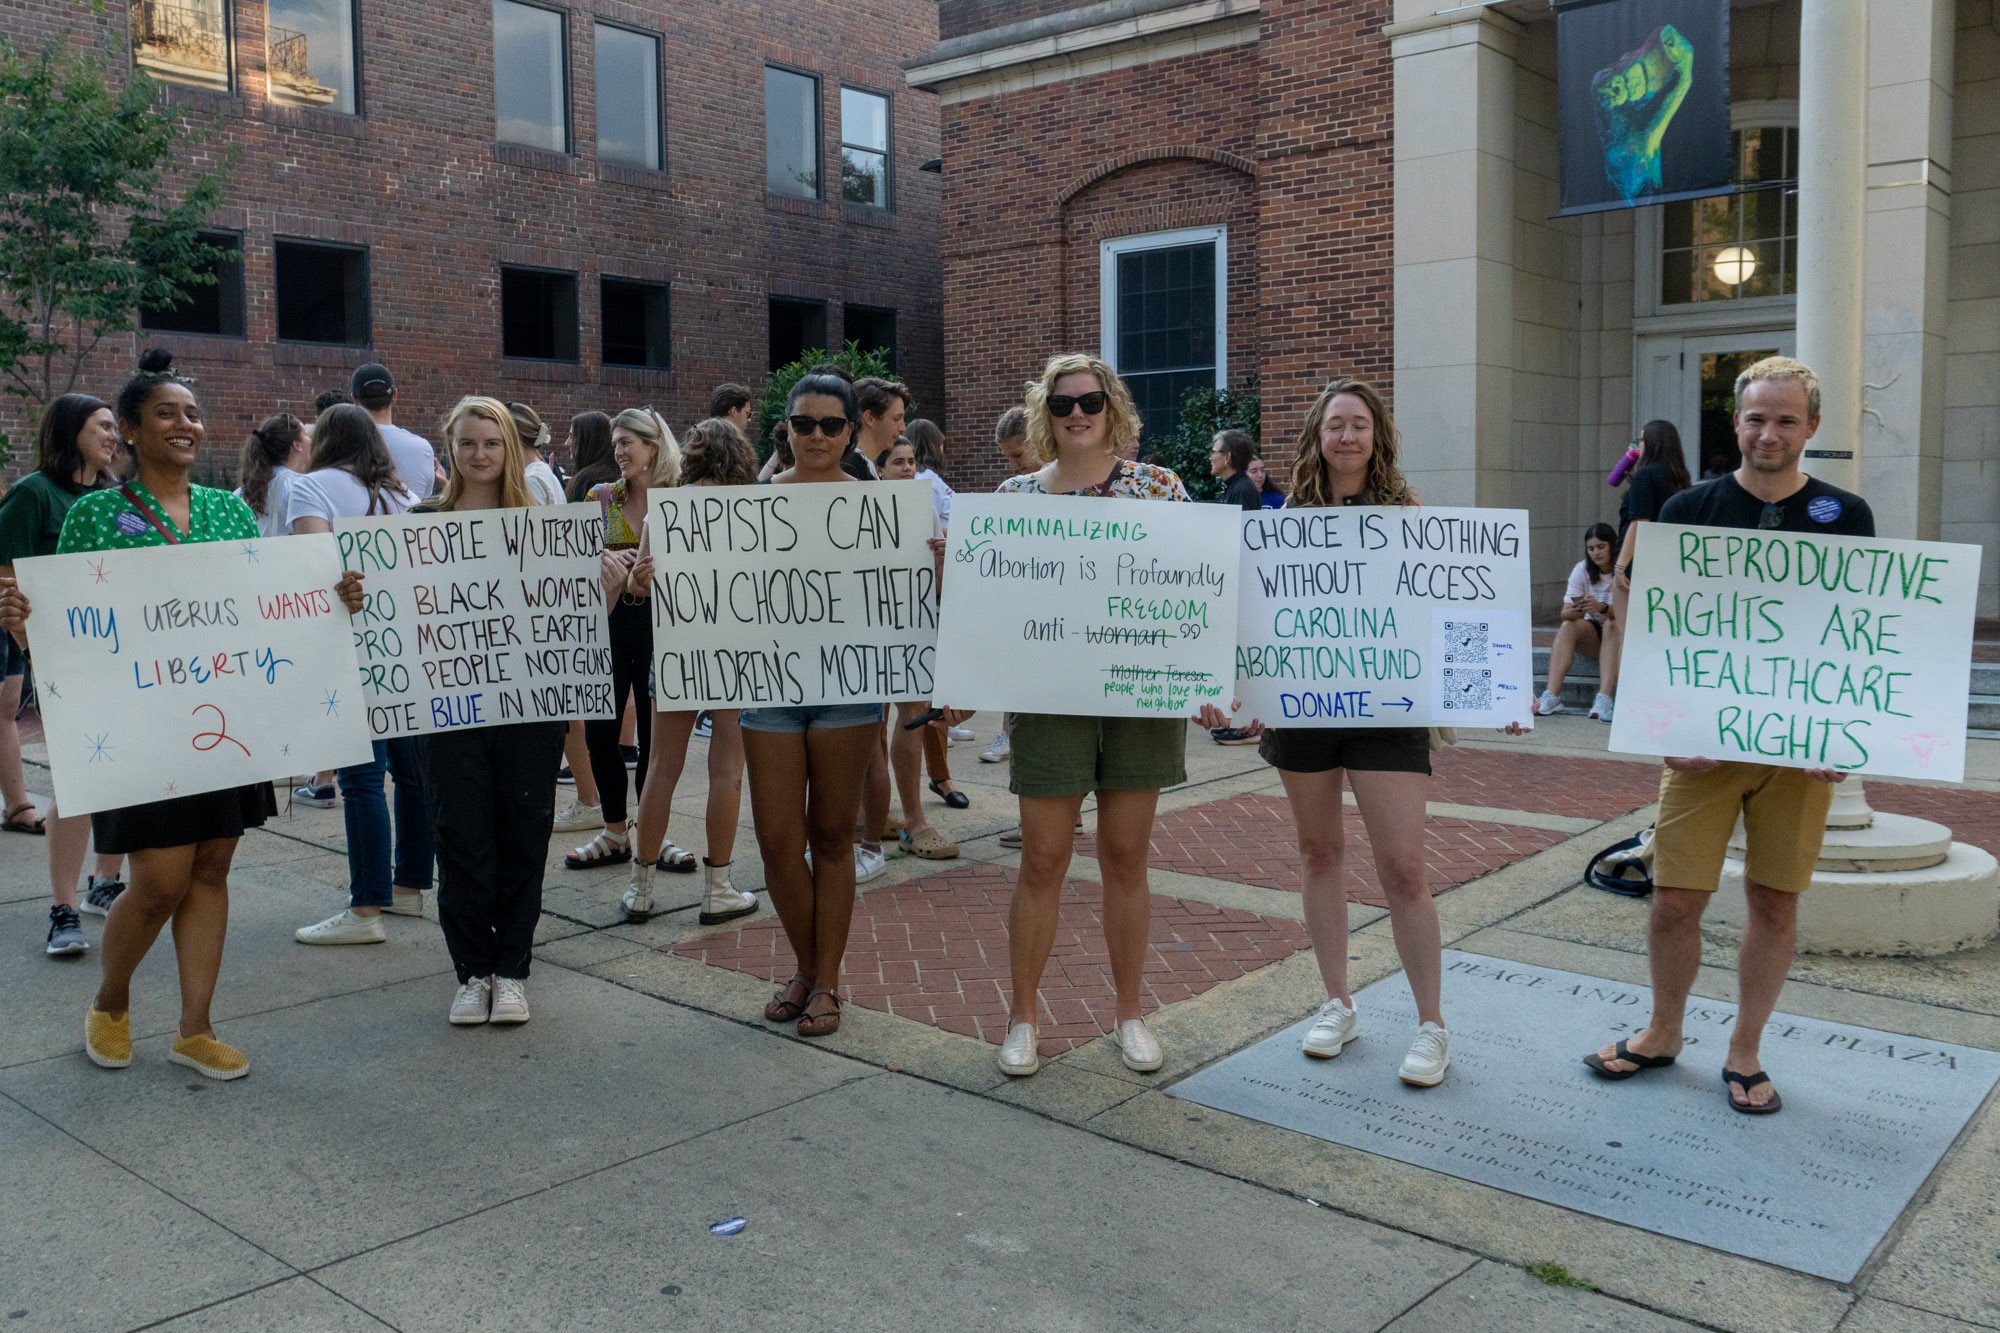 MY UTERUS WANTS
LIBERTY
2
PRO PEOPLE W/UTERUSES
PRO BLACK WOMEN
PRO MOTHER EARTH
PRO PEOPLE NOT GUNS
VOTE BLUE IN NOVEMBER
RAPISTS CAN
NOW CHOOSE THEIR
CHILDREN'S MOTHERS
CRIMINALIZING
"Abortion is Profoundly
FREEDOM
anti-woman"
Mother Teresa
people who love their
neighbor
CHOICE IS NOTHING
WITHOUT ACCESS
CAROLINA
ABORTION FUND
DONATE →
DONATE
MERCH
REPRODUCTIVE
RIGHTS ARE
HEALTHCARE
RIGHTS
PEACE AND JUSTICE PLAZA
"True peace is not merely the absence of
some negative force, it is the presence of justice."
- Martin Luther King, Jr.
BILL
THORPE
DANIEL H.
POLLITT
YONNI
CHAPMAN
DEAN E.
SMITH